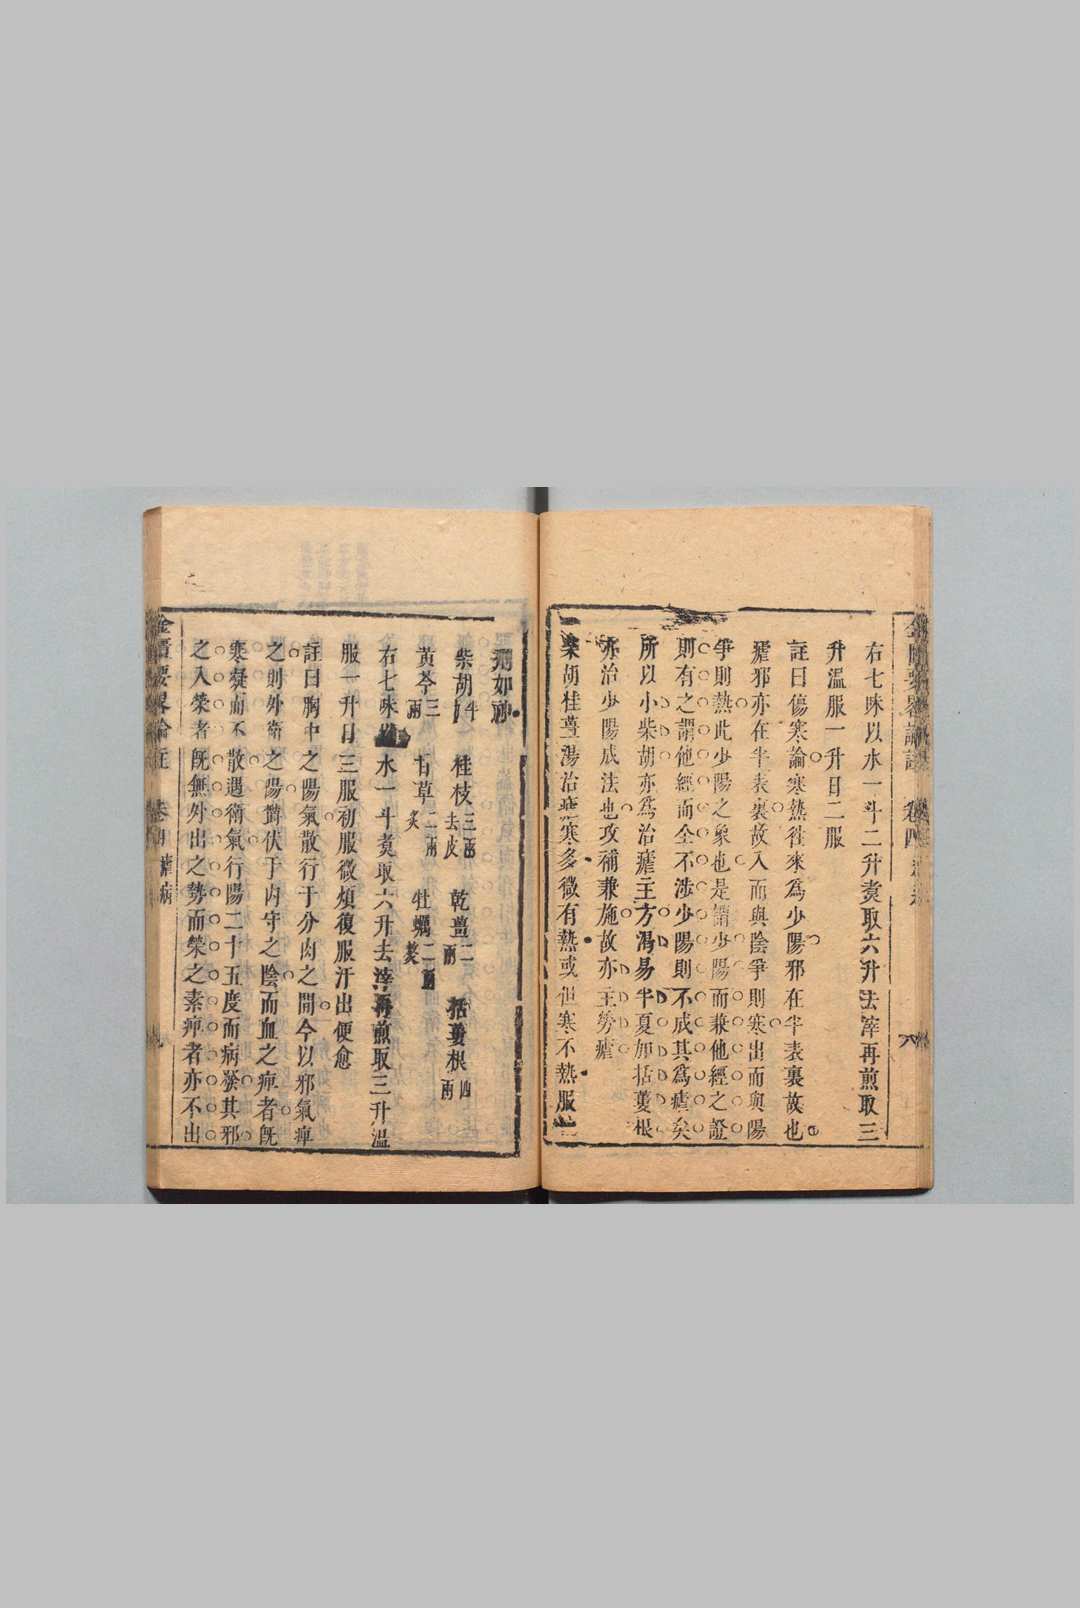 右七味以水一斗二升煑取六升去滓再煎取三
升溫服一升日二服
註曰傷寒論寒熱徃來為少陽邪在半表裏故也
瘧邪亦在半表裏故入而與陰爭則寒出而與陽
爭則熱此少陽之象也是謂少陽而兼他經之證
則有之謂他經而全不涉少陽則不成其為瘧矣
所以小柴胡亦為治瘧主方渴易半夏加括蔞根
亦治少陽成法也攻補兼施故亦主勞瘧
柴胡桂薑湯治瘧寒多微有熱或但寒不熱服
劑如神
柴胡半斤 桂枝三兩去皮 乾薑二兩 括蔞根四兩
黃芩三兩 甘草二兩炙 牡蠣二兩熬
右七味以水一斗煑取六升去滓再煎取三升溫
服一升日三服初服微煩復服汗出便愈
註曰胸中之陽氣散行于分肉之間今以邪氣痺
之則外衛之陽欝伏于內守之陰而血之痺者旣
寒凝而不散遇衛氣行陽二十五度而病發其邪
之入榮者旣無外出之勢而榮之素痺者亦不出
金匱要畧論註 卷四 瘧病